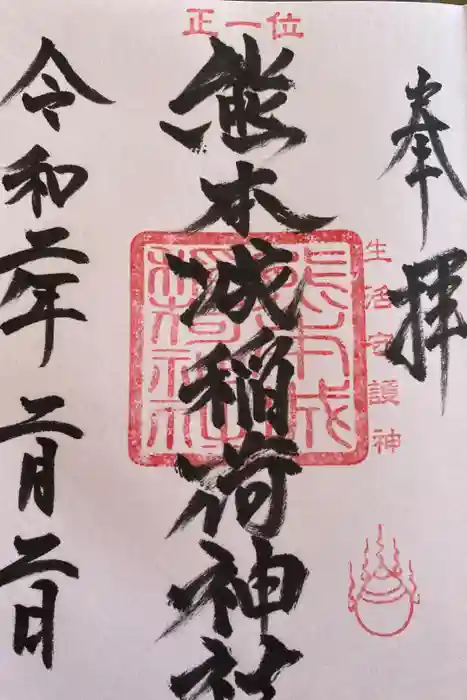 奉拝
生活守護神
正一位
熊本城稲荷神社
熊本城
稲荷神社
令和二年二月二日